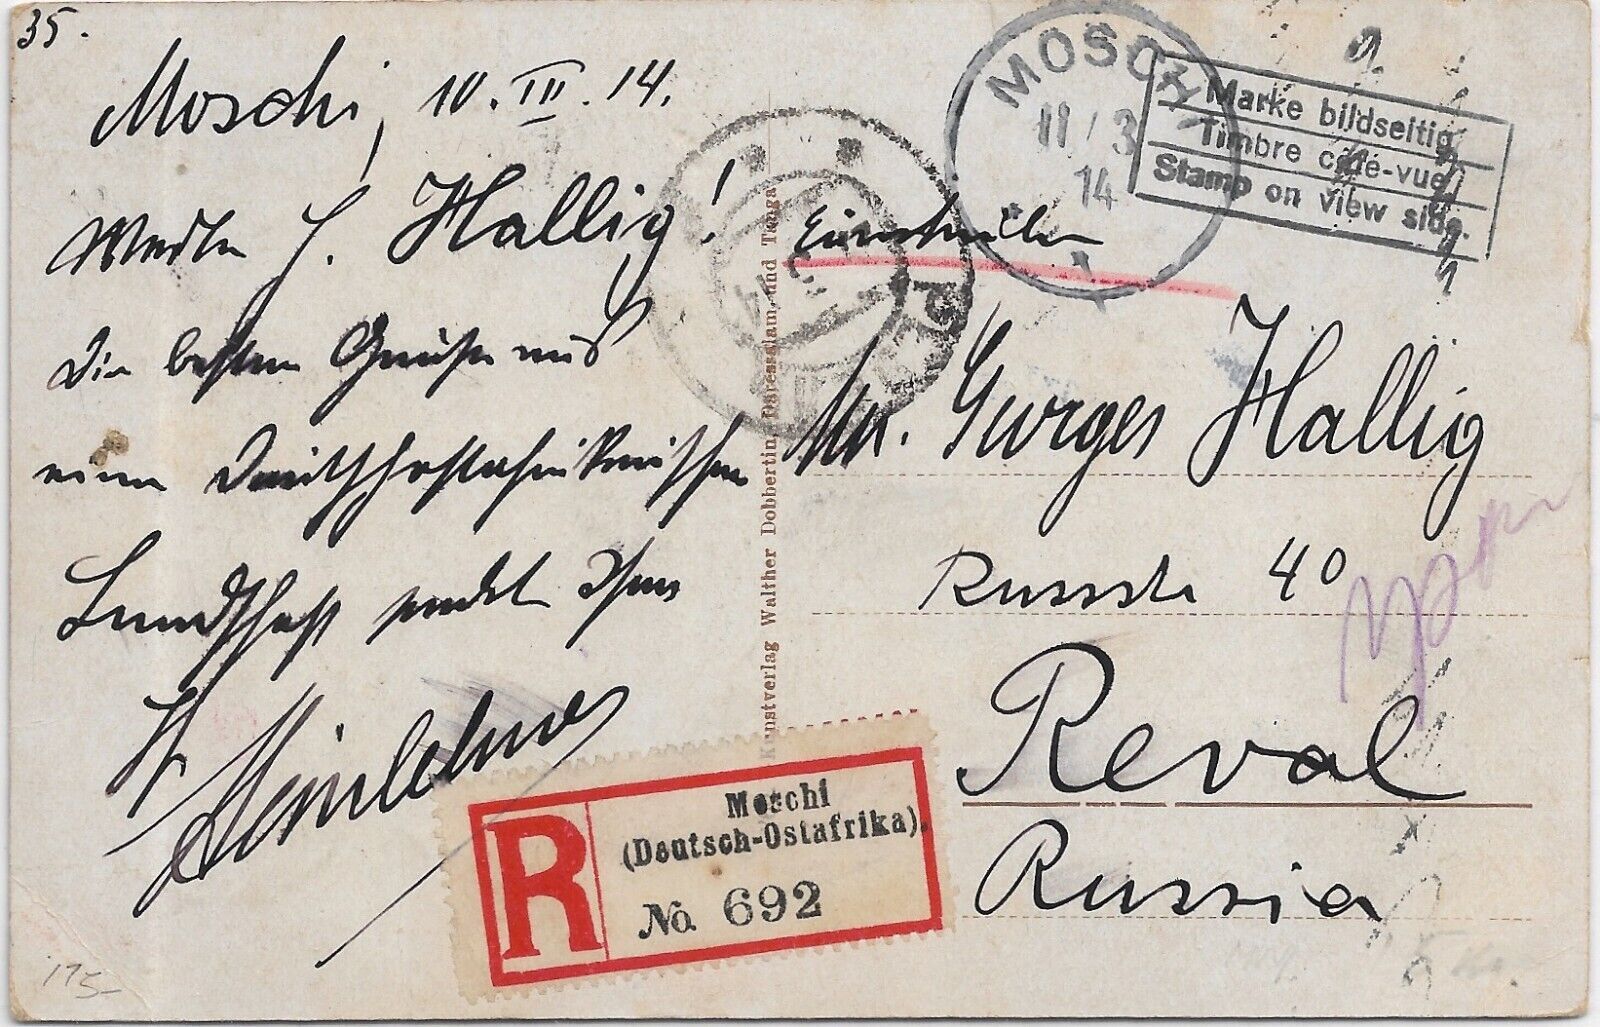 35.
Moschi, 10. III. 14.
H. Hallig!
Die besten Grüße aus
einer Deutschostafrikanischen
Landschaft sendet Ihnen
Kunstverlag Walther Dobbertin, Daressalam und Tanga
MOSCHI
11/3
14
Marke bildseitig
Timbre côté-vue
Stamp on view side.
Einschreiben
Mr. Georges Hallig
Russstr 40
Reval
Russia
R
Moschi
(Deutsch-Ostafrika).
No. 692
175